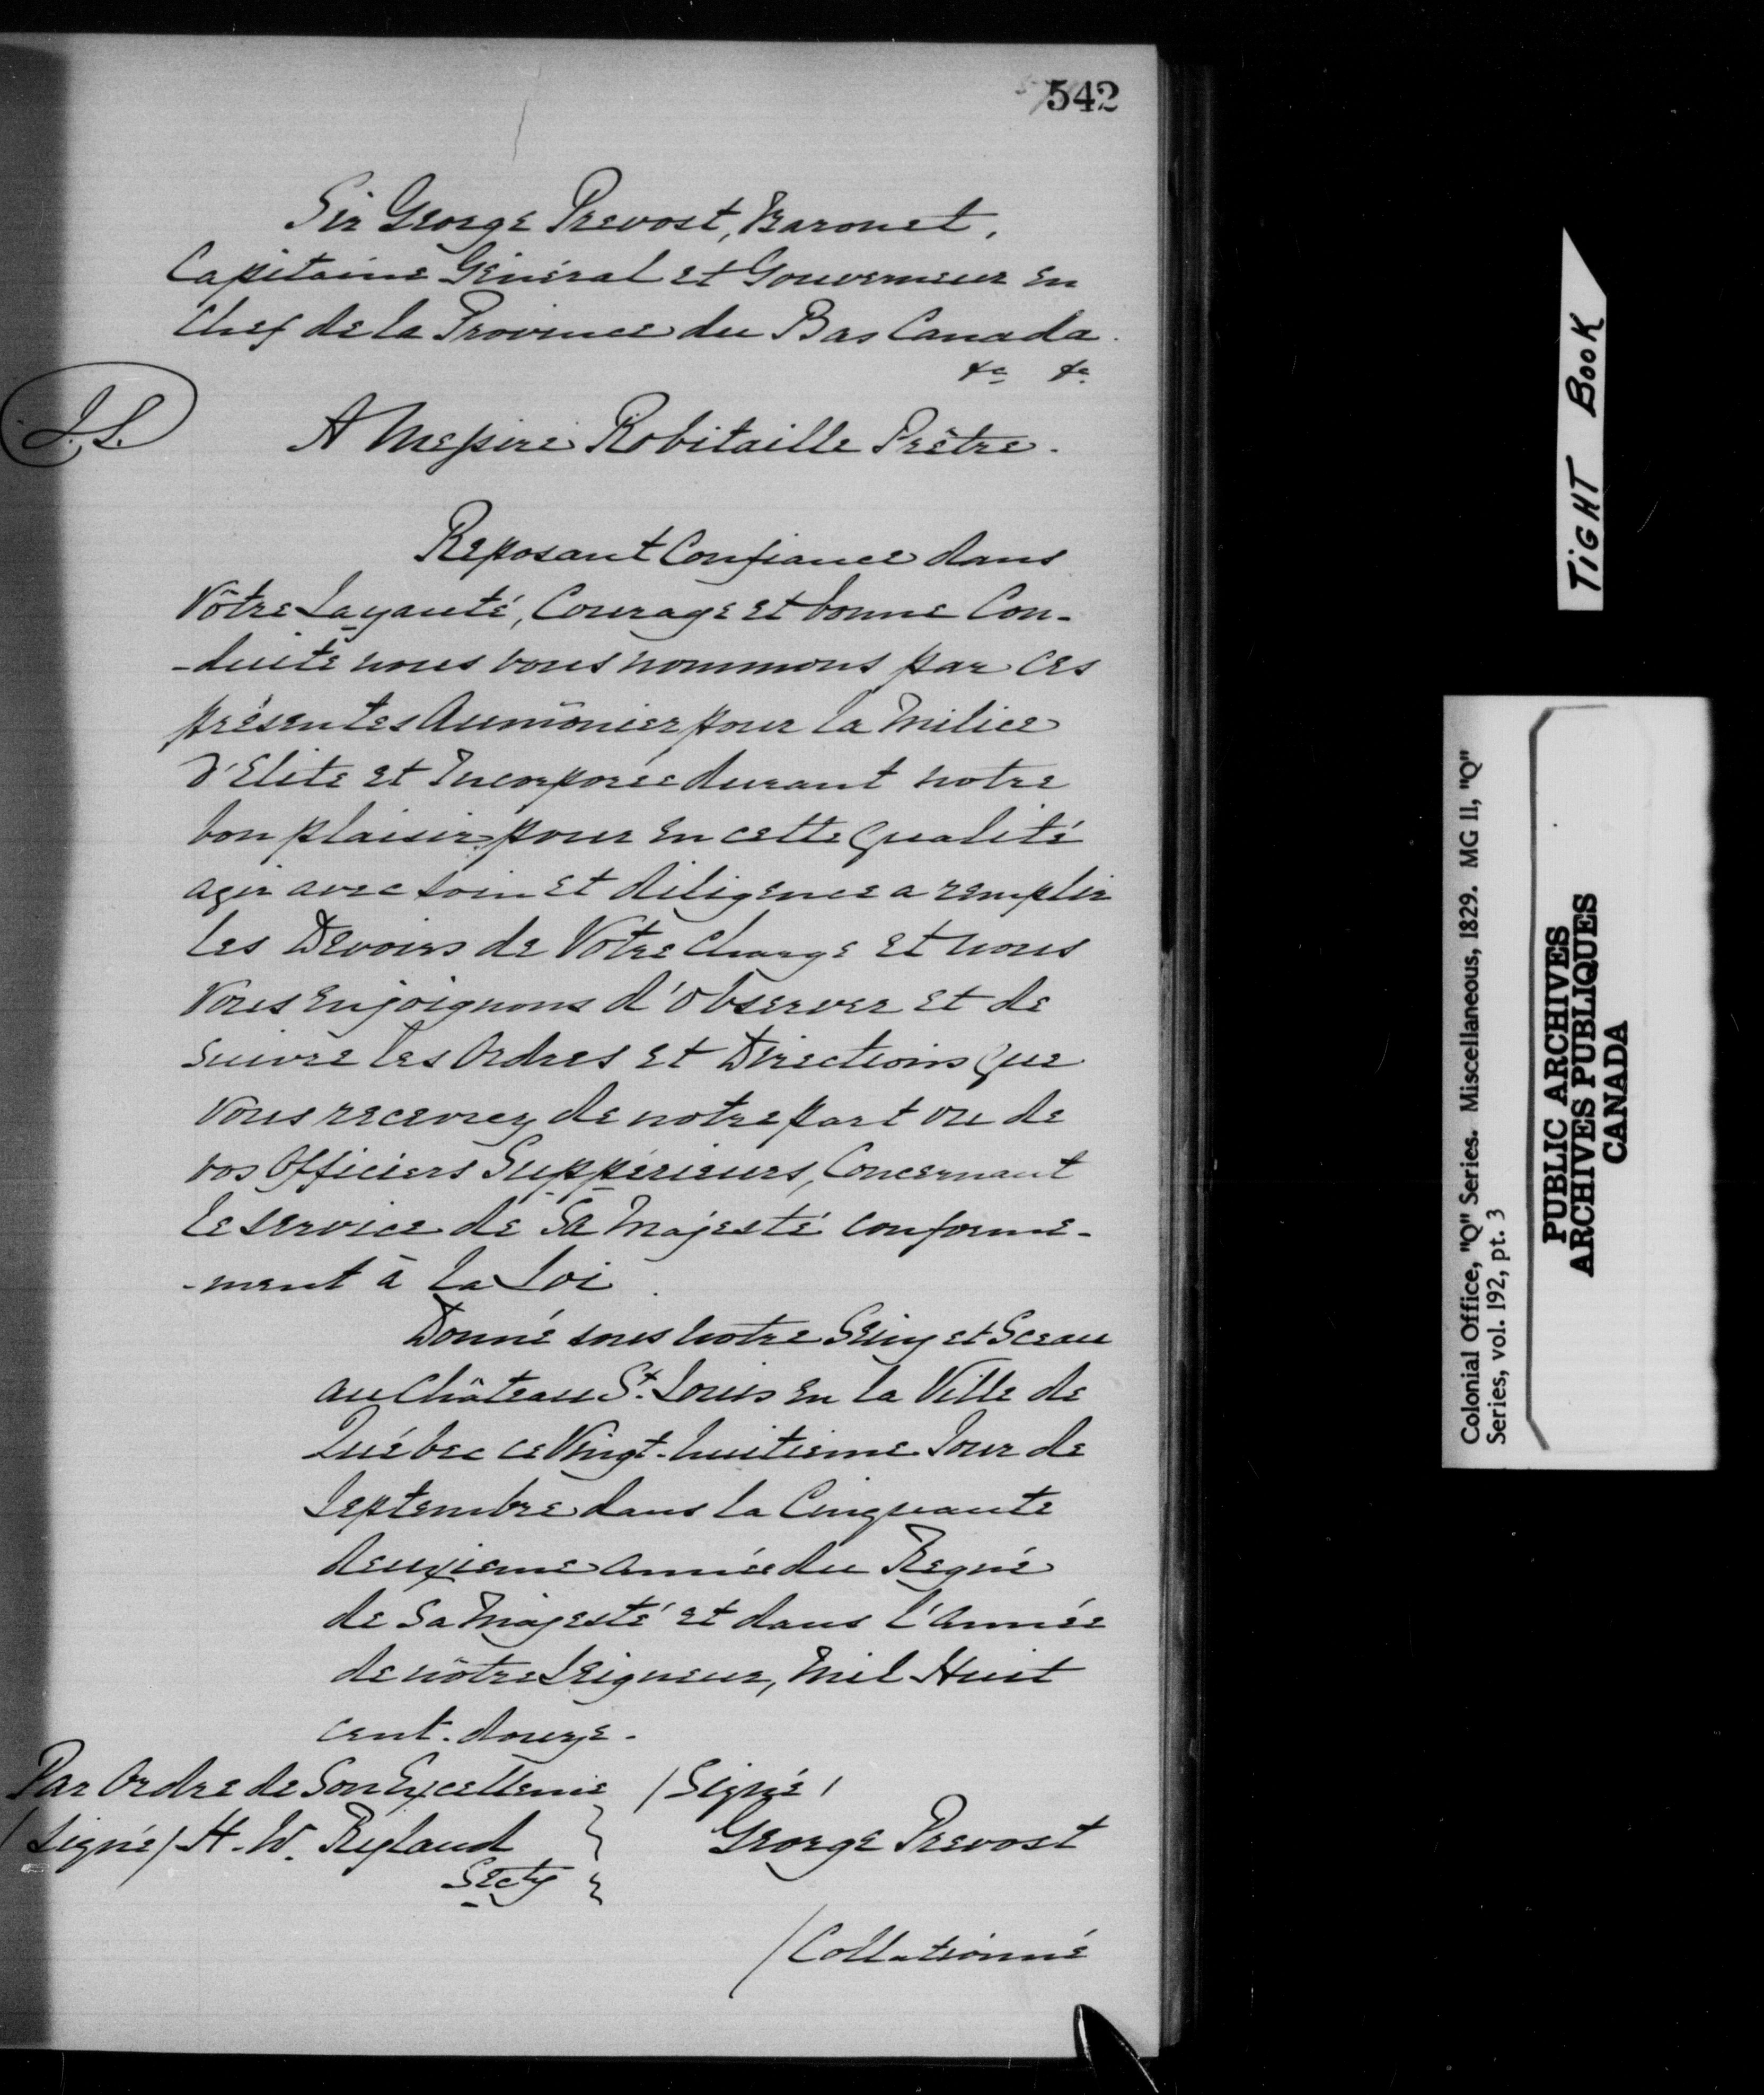 542
Sir George Prevost, Baronet,
Capitaine Général et Gouverneur en
Chef de la Province du Bas Canada.
&c &c
L.S.
A Messire Robitaille Prêtre.
Reposant Confiance dans
Vôtre Layauté, Courage et bonne Con-
-duite nous vous nommons par ces
présentes Aumônier pour la Milice
d'Elite et Incorporée durant notre
bon plaisir pour en cette qualité
agir avec soin et diligence a remplir
les Devoirs de Votre Charge et nous
Vous enjoignons d'observer et de
suivre les Ordres et Directions que
Vous recevrez de notre part ou de
vos Officiers Suppérieurs, Concernant
le service de Sa Majesté conformé-
-ment à la Loi.
Donné sous notre Seing et Sceau
au Château St. Louis en la Ville de
Québec ce Vingt-huitieme Jour de
Septembre dans la Cinquante
deuxieme année du Regne
de Sa Majesté et dans l'année
de nôtre Seigneur, Mil Huit
cent. douze.
Par Ordre de Son Excellence /Signé/
/Signé/ H. W. Ryland George Prevost
Secty
/Collationné
TIGHT BOOK
Colonial Office, "Q" Series. Miscellaneous, 1829. MG 11, "Q"
Series, vol. 192, pt. 3
PUBLIC ARCHIVES
ARCHIVES PUBLIQUES
CANADA